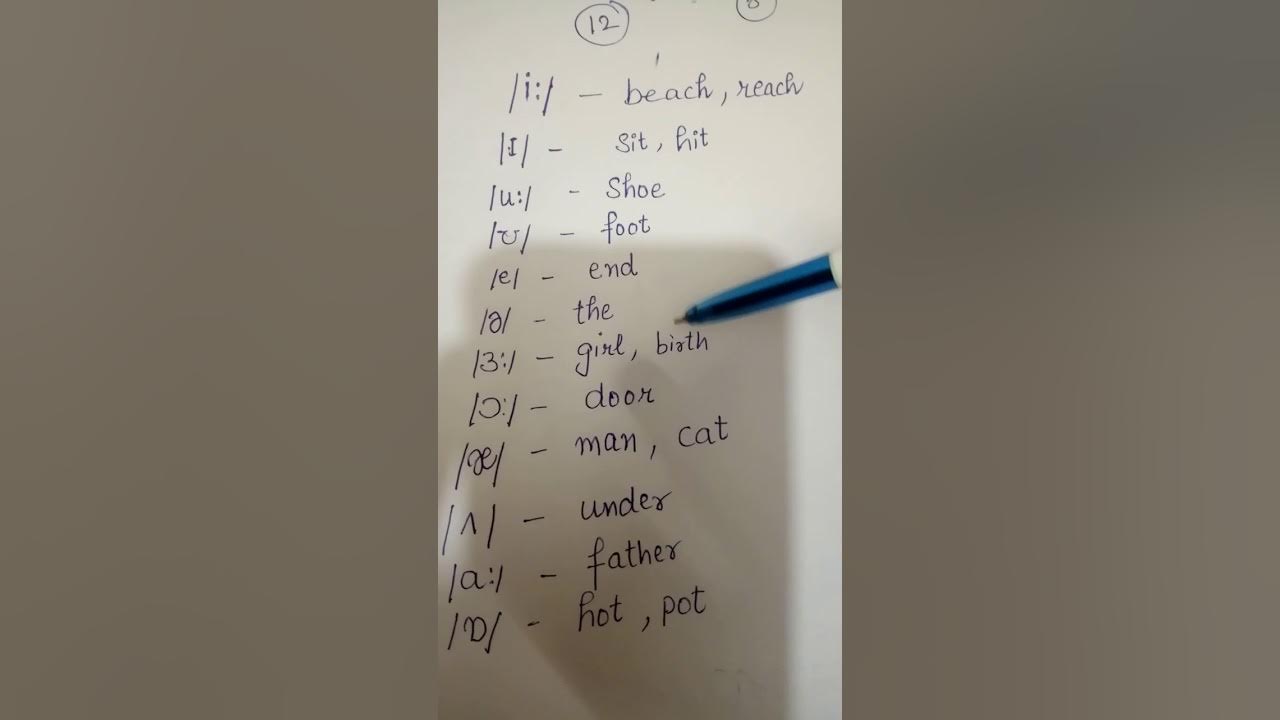 12 8
/i:/ – beach, reach
/ɪ/ – sit, hit
/u:/ – Shoe
/ʊ/ – foot
/e/ – end
/ə/ – the
/ɜ:/ – girl, birth
/ɔ:/ – door
/æ/ – man, cat
/ʌ/ – under
/a:/ – father
/ɒ/ – hot, pot